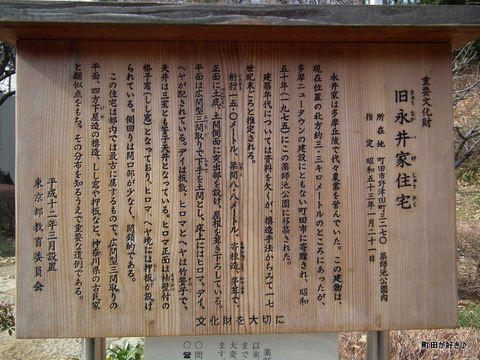 重要文化財
旧永井家住宅
きゅうながいけじゅうたく
所在地 町田市野津田町三二七〇 薬師池公園内
指定 昭和五十三年一月二十一日
永井家は多摩丘陵で代々農業を営んでいた。この建物は、
現在位置の北方約三・三キロメートルのところにあったが、
多摩ニュータウンの建設にともない町田市に寄贈され、昭和
五十年(一九七五)にこの薬師池公園に移築された。
建築年代については資料を欠くが、構造手法からみて一七
世紀末ごろと推定される。
桁行一五・〇メートル、梁間八・八メートル、寄棟造、茅葺で、
正面に土庇、土間側面に突出部を設け、屋根を葺き下ろしている。
平面は広間型三間取りで下手を土間とし、床上にはヒロマ、デイ、
ヘヤが配されている。デイは板敷、ヒロマとヘヤは竹簀子で、
天井は三室とも簀子天井となっている。ヒロマ正面は袖壁付の
格子窓(しし窓)となっており、ヒロマ、ヘヤ境には押板が設け
られている。側回りは開口部が少なく、閉鎖的である。
この住宅は都内では最古に属するもので、広間型三間取りの
平面、四方下屋造の構造、しし窓や押板など、神奈川県の古民家
と類似点をもち、その分布を知るうえで重要な遺例である。
平成十二年三月設置
東京都教育委員会
文化財を大切に
町田が好き♪